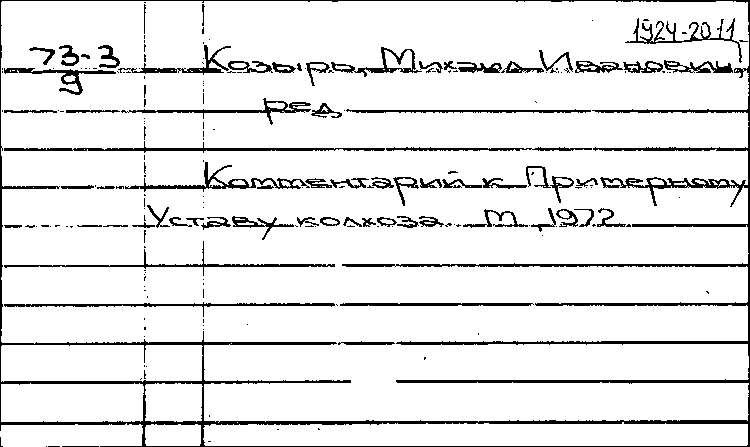 1924-2011
73-3
9
Козырь, Михаил Иванович,
ред.
Комментарий к Примерному
Уставу колхоза. М., 1972